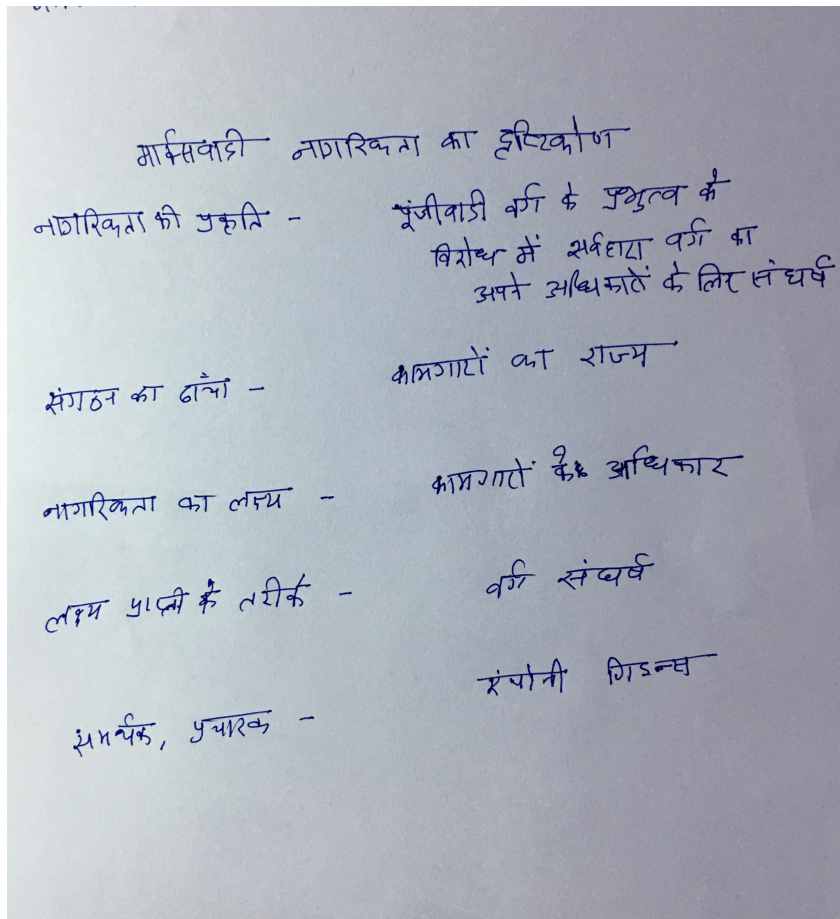 मार्क्सवादी नागरिकता का दृष्टिकोण
नागरिकता की प्रकृति - पूंजीवादी वर्ग के प्रभुत्व के
विरोध में सर्वहारा वर्ग का
अपने अधिकारों के लिए संघर्ष
संगठन का ढाँचा - कामगारों का राज्य
नागरिकता का लक्ष्य - कामगारों के अधिकार
लक्ष्य प्राप्ती के तरीके - वर्ग संघर्ष
समर्थक, प्रचारक - एंथोनी गिडन्स